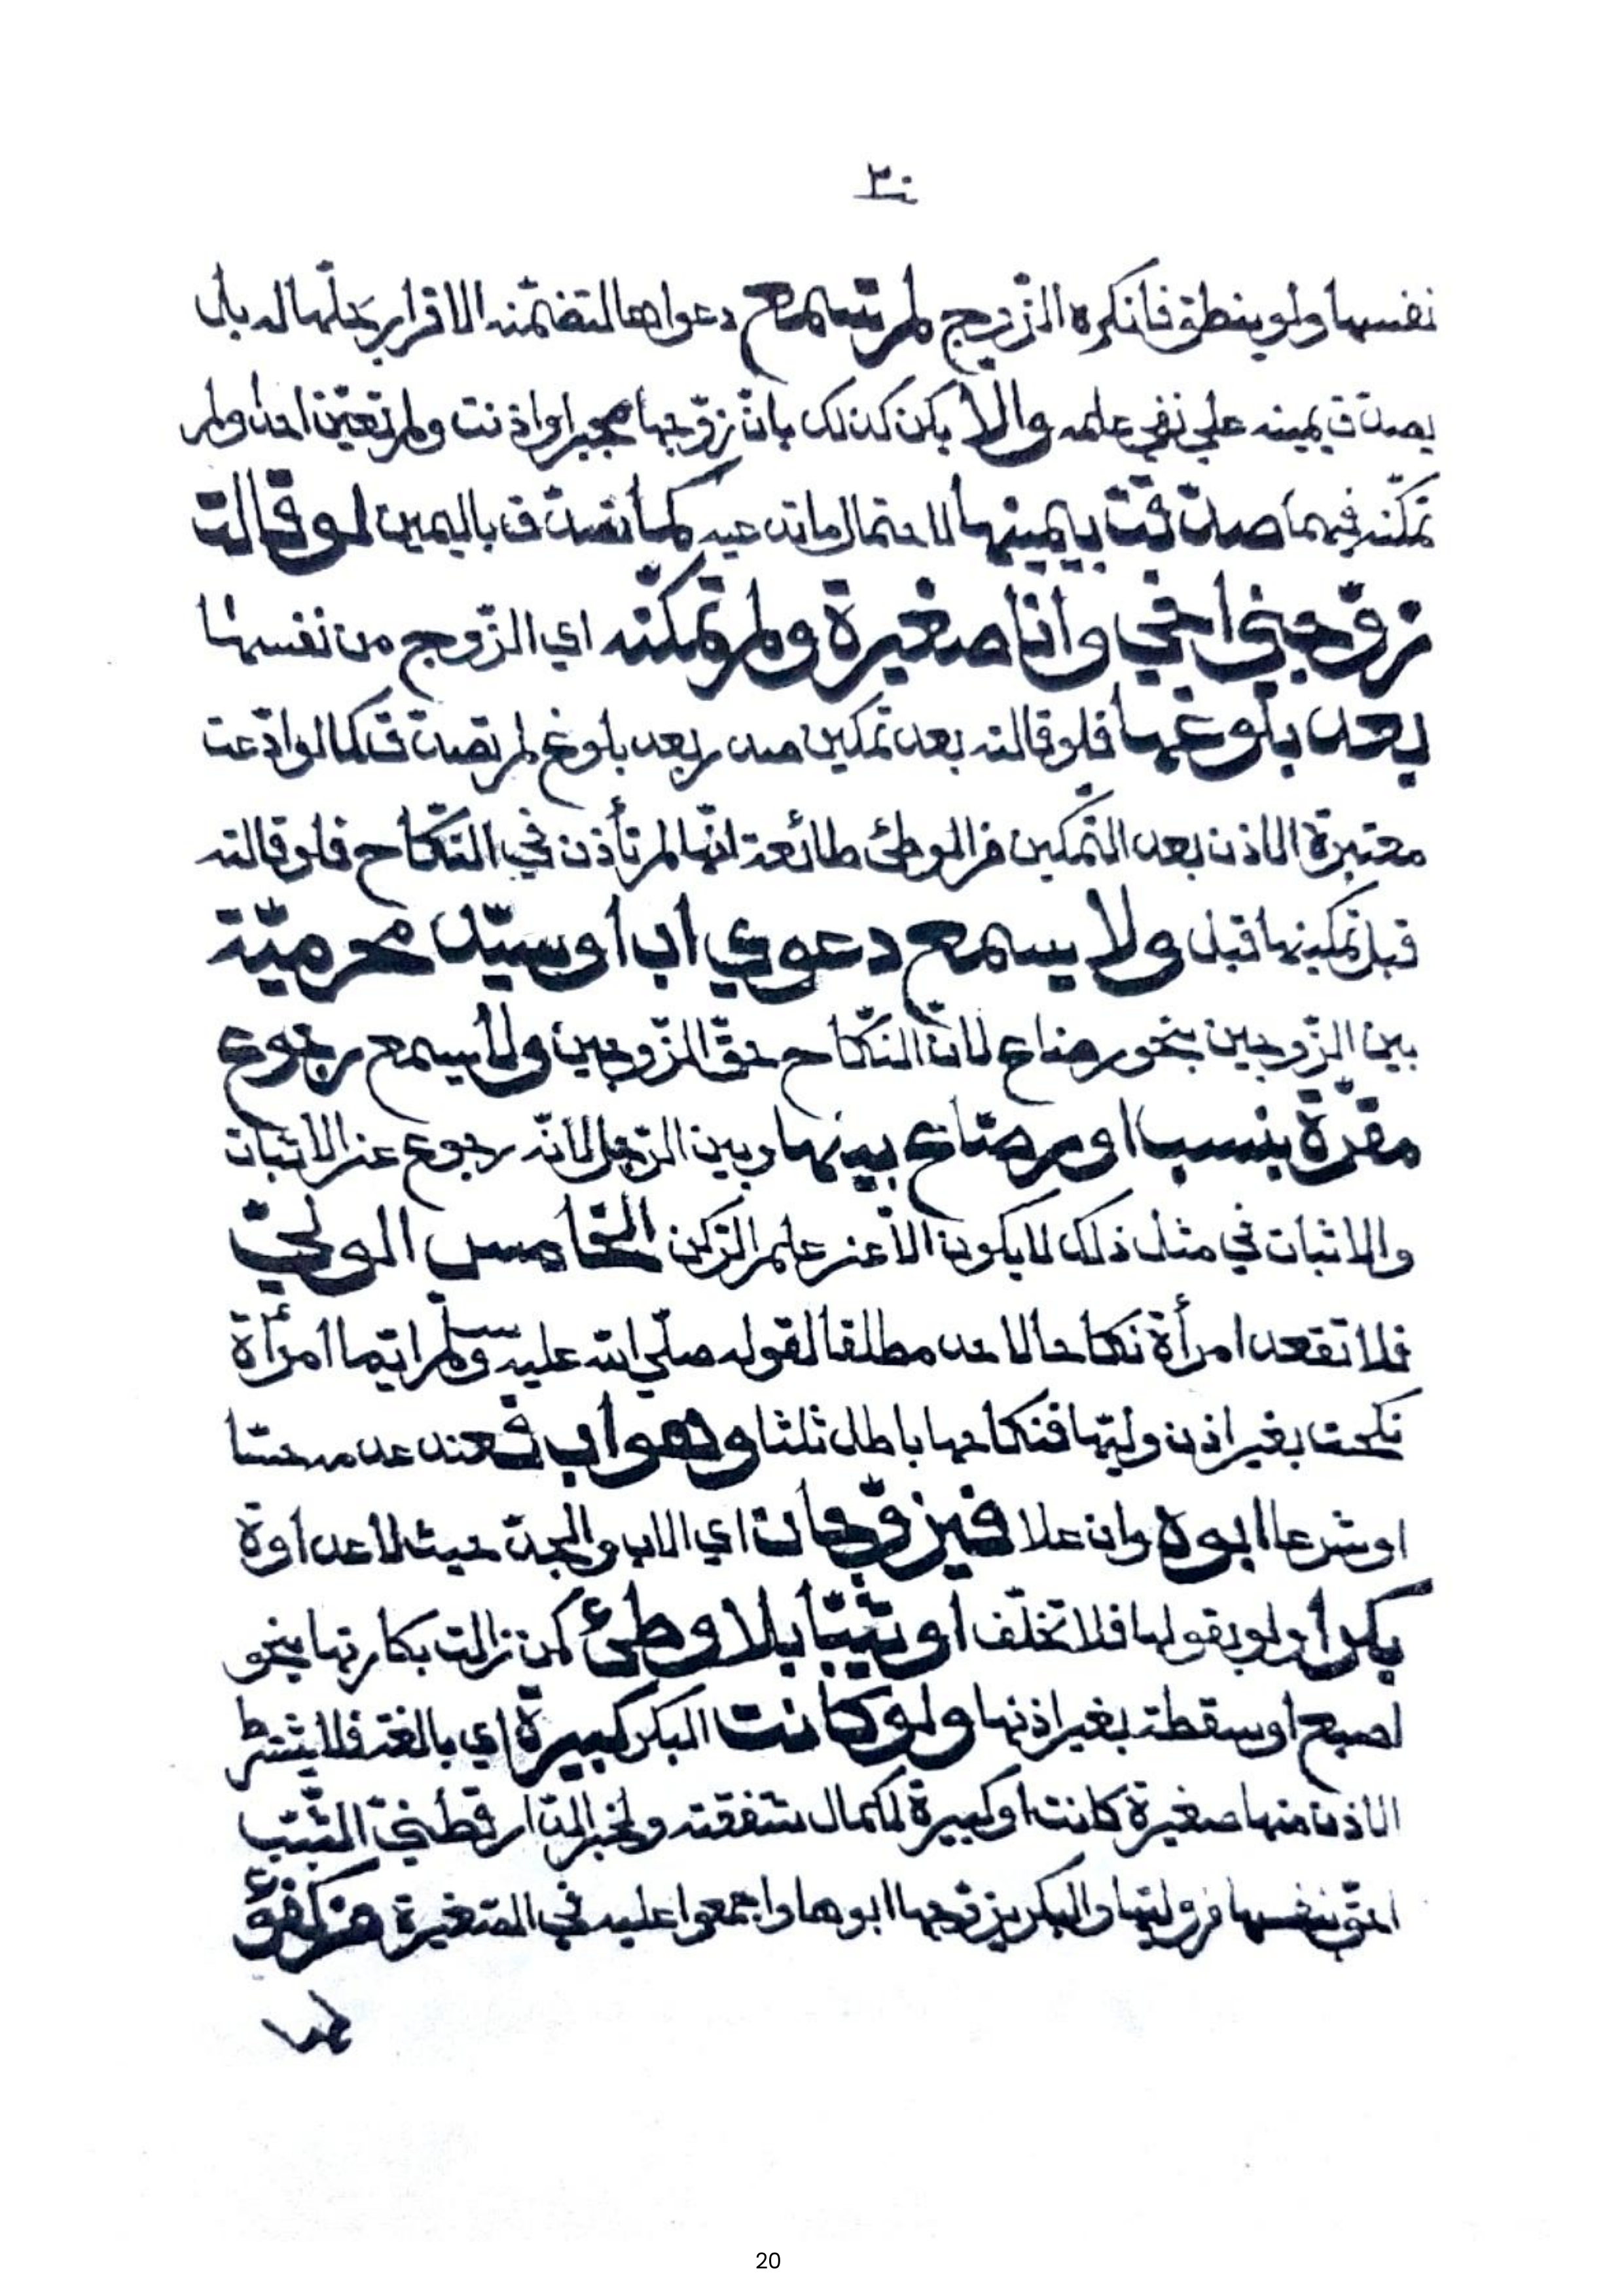 ٢٠
نفسها ولو بنطق فانكره الزّوج لم تسمع دعواها لتضمّنه الاقرار بحلّها له بل
يصدّق بيمينه علي نفي علمه والّا يكن كذلك بانّ زوّجها مجبر او اذنت ولم تعيّن احدا ولم
تمكّنه فيهما صدّقت بيمينها لاحتمال ما تدّعيه كما تصدّق باليمين لو قالت
زوّجني اخي وانا صغيرة ولم تمكّنه اي الزّوج من نفسها
بعد بلوغها فلو قالته بعد تمكين صدر بعد بلوغ لم تصدّق فكما لو ادّعت
معتبرة الاذن بعد التّمكين من الوطئ طائعة انّها لم تأذن في النّكاح فلو قالته
قبل تمكينها قبل ولا يسمع دعوي اب او سيّد محرميّة
بين الزّوجين بنحو رضاع لانّ النّكاح حقّ الزّوجين ولا يسمع رجوع
مقرّة بنسب او رضاع بينها وبين الرّجل لانّه رجوع عن الاثبات
والاثبات في مثل ذلك لا يكون الّا عن علم الرّكن الخامس الوليّ
فلا تقعد امرأة نكاحا لاحد مطلقا لقوله صلّي الله عليه وسلّم ايّما امرأة
نكحت بغير اذن وليّها فنكاحها باطل ثلثا وهو اب فعند عدمه حسّا
او شرعا ابوه وان علا فيزوّجان اي الاب والجدّ حيث لا عداوة
بكرا ولو بقولها فلا تحلّف او ثيّبا بلا وطئ كمن زالت بكارتها بنحو
اصبع او سقطة بغير اذنها ولو كانت البكر كبيرة اي بالغة فلا يشترط
الاذن منها صغيرة كانت او كبيرة لكمال شفقته ولخبر الدّارقطنيّ الثّيّب
احقّ بنفسها من وليّها والبكر يزوّجها ابوها واجمعوا عليه في الصّغيرة من كفؤ
20